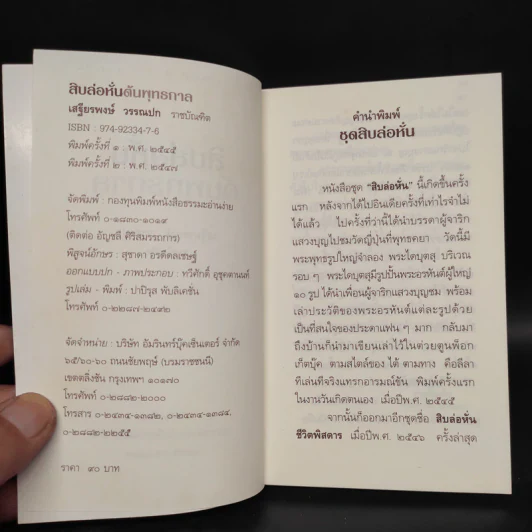 สิบล่อหั่นต้นพุทธกาล
เสฐียรพงษ์ วรรณปก ราชบัณฑิต
ISBN : 974-92334-7-6
พิมพ์ครั้งที่ ๑ : พ.ศ. ๒๕๔๕
พิมพ์ครั้งที่ ๒ : พ.ศ. ๒๕๔๗
จัดพิมพ์ : กองทุนพิมพ์หนังสือธรรมะอ่านง่าย
โทรศัพท์ ๐-๑๘๓๐-๑๐๑๙
(ติดต่อ อัญชลี ศิริสมรรถการ)
พิสูจน์อักษร : สุชาดา อรดีดลเชษฐ์
ออกแบบปก - ภาพประกอบ : ทวีศักดิ์ อุชุคตานนท์
รูปเล่ม - พิมพ์ : ปาปิรุส พับลิเคชั่น
โทรศัพท์ ๐-๒๒๘๗-๒๔๙๒
จัดจำหน่าย : บริษัท อัมรินทร์บุ๊คเซ็นเตอร์ จำกัด
๖๕/๖๐-๖๐ ถนนชัยพฤกษ์ (บรมราชชนนี)
เขตตลิ่งชัน กรุงเทพฯ ๑๐๑๗๐
โทรศัพท์ ๐-๒๘๘๒-๒๐๐๐
โทรสาร ๐-๒๔๓๔-๑๓๘๒, ๐-๒๔๓๔-๑๓๘๔,
๐-๒๘๘๒-๒๒๕๕
ราคา ๙๐ บาท
คำนำพิมพ์
ชุดสิบล่อหั่น
หนังสือชุด “สิบล่อหั่น” นี้เกิดขึ้นครั้ง
แรก หลังจากได้ไปอินเดียครั้งที่เท่าไรจำไม่
ได้แล้ว ไปครั้งที่ว่านี้ได้นำบรรดาผู้จาริก
แสวงบุญไปชมวัดญี่ปุ่นที่พุทธคยา วัดนี้มี
พระพุทธรูปใหญ่จำลอง พระไดบุตสุ บริเวณ
รอบ ๆ พระไดบุตสุมีรูปปั้นพระอรหันต์ผู้ใหญ่
๑๐ รูป ได้นำเพื่อนผู้จาริกแสวงบุญชม พร้อม
เล่าประวัติของพระอรหันต์แต่ละรูปด้วย
เป็นที่สนใจของประดาแฟน ๆ มาก กลับมา
ถึงบ้านก็นำมาเขียนเล่าไว้ในต่วยตูนพ็อก
เก็ตบุ๊ค ตามสไตล์ของ ไต้ ตามทาง คือลีลา
ทีเล่นทีจริงแทรกอารมณ์ขัน พิมพ์ครั้งแรก
ในงานวันเกิดตนเอง เมื่อปีพ.ศ. ๒๕๔๕
จากนั้นก็ออกมาอีกชุดชื่อ สิบล่อหั่น
ชีวิตพิสดาร เมื่อปีพ.ศ. ๒๕๔๖ ครั้งล่าสุด